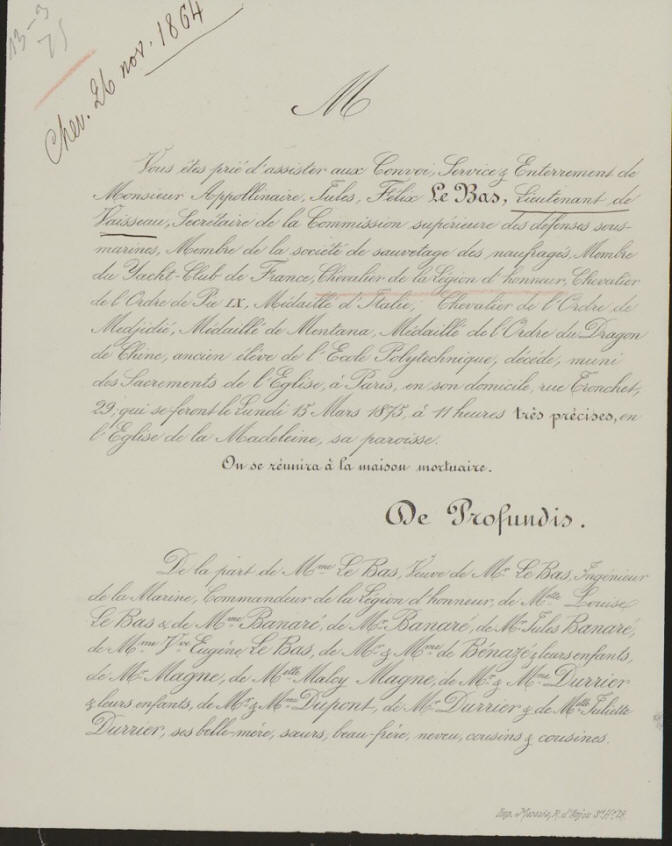 13-3
75
Chev. 26 nov. 1864
M
Vous êtes prié d'assister aux Convoi, Service & Enterrement de
Monsieur Appollinaire, Jules, Félix Le Bas, Lieutenant de
Vaisseau, Secrétaire de la Commission supérieure des défenses sous-
marines, Membre de la société de sauvetage des naufragés, Membre
du Yacht-Club de France, Chevalier de la Légion d'honneur, Chevalier
de l'Ordre de Pie IX, Médaillé d'Italie, Chevalier de l'Ordre de
Medjidié, Médaillé de Mentana, Médaillé de l'Ordre du Dragon
de Chine, ancien élève de l'Ecole Polytechnique, décédé, muni
des Sacrements de l'Eglise, à Paris, en son domicile, rue Tronchet,
29; qui se feront le Lundi 15 Mars 1875, à 11 heures très précises, en
l'Eglise de la Madeleine, sa paroisse.
On se réunira à la maison mortuaire.
De Profundis.
De la part de Mme Le Bas, Veuve de Mr Le Bas, Ingénieur
de la Marine, Commandeur de la Légion d'honneur, de Melle Louise
Le Bas & de Mme Banaré, de Mr Banaré, de Mr Jules Banaré,
de Mme Vve Eugène Le Bas, de Mr & Mme de Bénazé & leurs enfants,
de Mr Magne, de Melle Malcy Magne, de Mr & Mme Durrier
& leurs enfants, de Mr & Mme Dupont, de Mr Durrier & de Melle Juliette
Durrier, ses belle-mère, sœurs, beau-frère, neveu, cousins & cousines.
Imp. R. d'Anjou St Hré 78